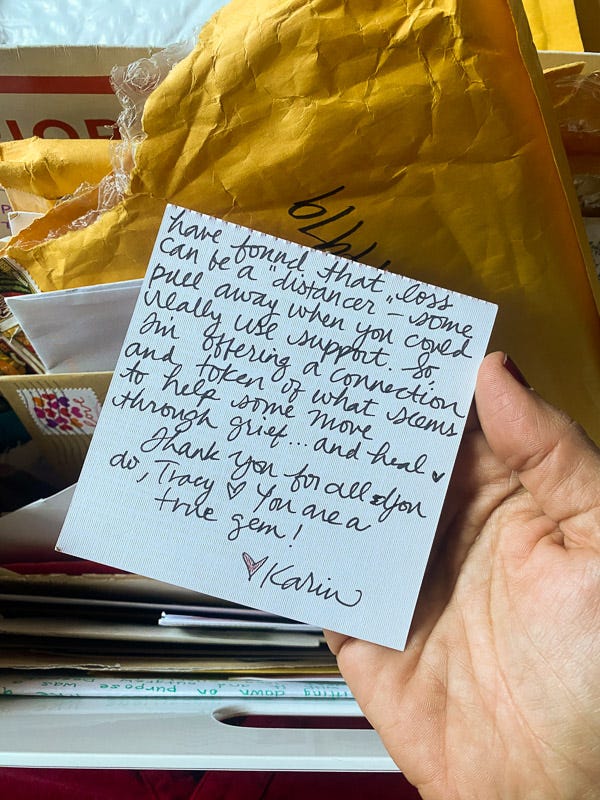 IOR
have found that loss
can be a "distancer" – some
pull away when you could
really use support. So,
I'm offering a connection
and token of what seems
to help some move
through grief... and heal ♥
Thank you for all you
do, Tracy ♡ You are a
true gem!
♡ Karin
love
down on purpose was